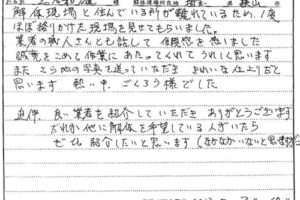 解体現場と住んでいる所が離れているため、1度
ほぼ終りかけた現場を見せてもらいました。
業者の職人さんとも話して信頼感を感じました
誠意をこめて作業にあたってくれてうれしく思います
また こちらの写真を送っていただき きれいな仕上りだと
思います 熱い中、ごくろう様でした。
追伸 良い業者を紹介していただき ありがとうございます
だれか他に解体を希望している人がいたら
ぜひ紹介したいと思います (なかなかいないと思いますが)